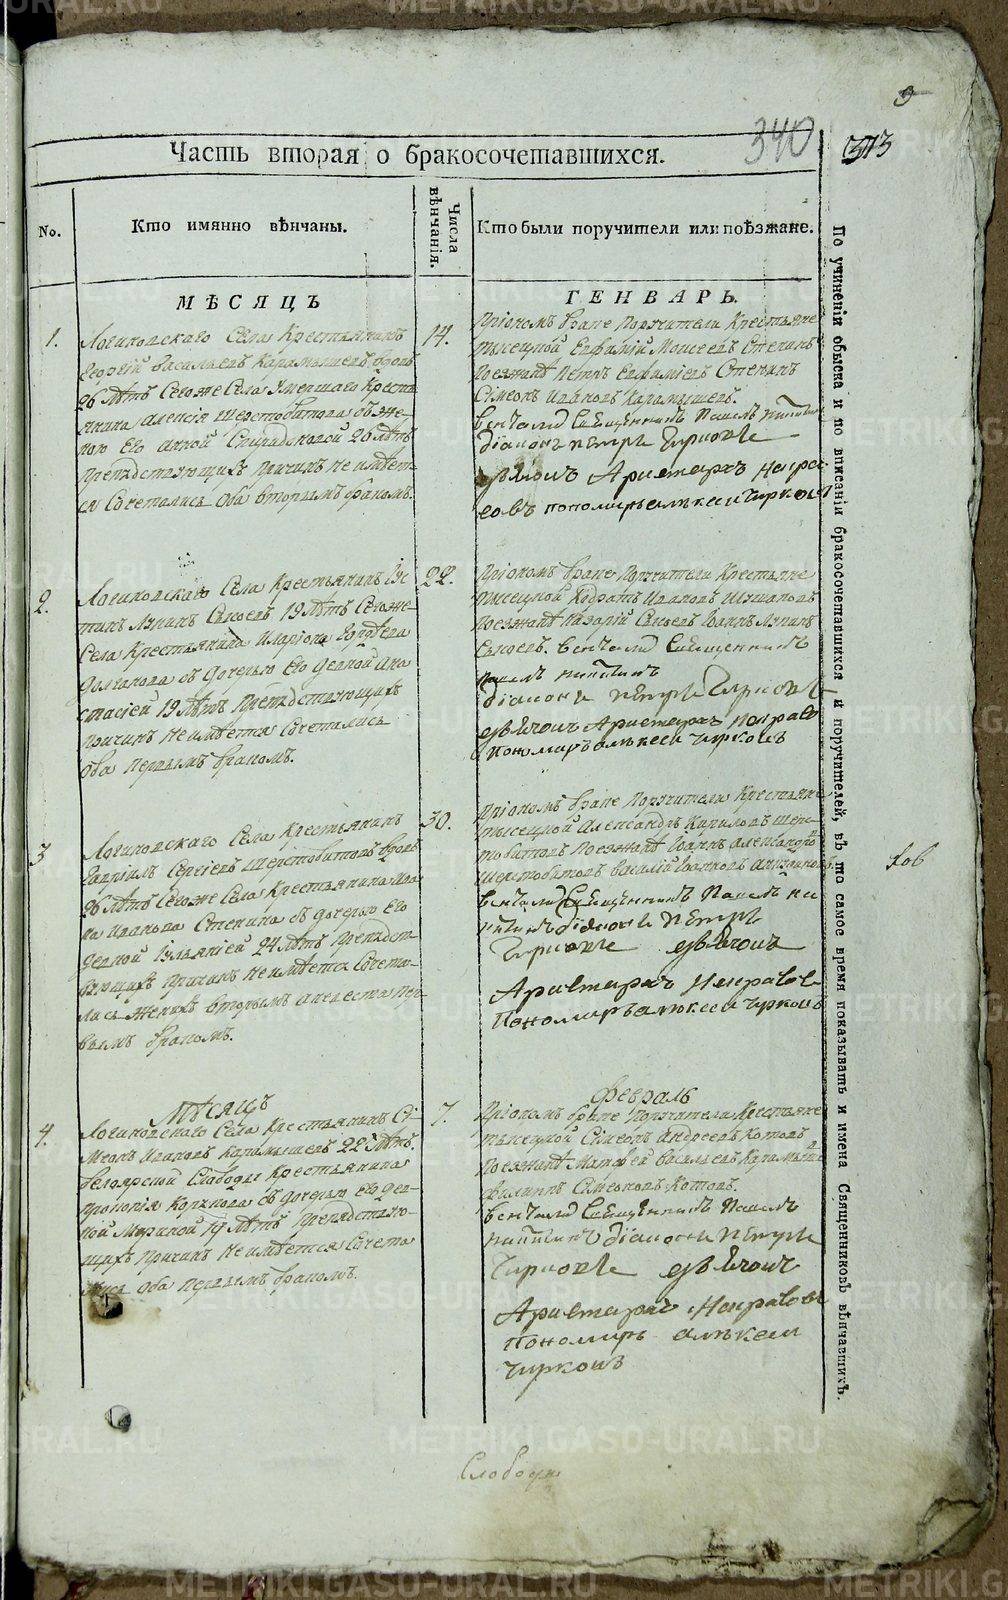 9
340
373
Часть вторая о бракосочетавшихся.
No.
Кто имянно вѣнчаны.
Числа вѣнчанія.
Кто были поручители или поѣзжане.
МѢСЯЦЪ
ГЕНВАРЬ.
1.
Логиновскаго Села Крестьянинъ
Георгій Васильевъ Карамышевъ вдовъ
26 лѣтъ Сегоже Села Умершаго Кресть
янина Алексія Шерстобитова съ же-
ною Его Анной Спиридоновой 26 лѣтъ
Препядствующихъ причинъ не имѣет-
ся Сочетались Оба вторымъ бракомъ.
14.
Приономъ браке Поручители Крестьяне
тысецкой Евфимій Моисеевъ Стенинъ
Поезжанѣ Петръ Евфиміевъ Стенинъ
Симеонъ Ивановъ Карамышевъ.
венчали Священникъ Павелъ
діаконъ петръ Чирковъ
дьячокъ Аристархъ Некра
совъ пономарь алексеи чирковъ
2.
Логиновскаго Села Крестьянинъ
Лукинъ Сысоевъ 19 лѣтъ Сегоже
Села Крестьянина Иларіона
Долганова съ дочерью Его девкой Ана
стасіей 19 лѣтъ Препядствующихъ
причинъ Не имѣется Сочетались
Оба первымъ бракомъ.
22.
Приономъ браке Поручители Крестьяне
тысецкой Кодратъ Ивановъ
Поезжанѣ Назарій Сысоевъ Іоаннъ Лукинъ
Сысоевъ. венчали Священникъ
Павелъ
діаконъ петръ Чирковъ
дьячокъ Аристархъ Некрасо
пономарь алексеи чирковъ
3
Логиновскаго Села Крестьянинъ
Гавріилъ Сергіевъ Шерстобитовъ вдовъ
26 лѣтъ Сегоже Села Крестьянина
Иванова Стенина съ дочерью Его
девкой Іуланіей 24 лѣтъ Препядст-
вующихъ причинъ Не имѣется Сочета-
лись Женихъ вторымъ а невеста пер-
вымъ бракомъ.
30.
Приономъ браке Поручители Крестьяне
тысецкой Александръ Кириловъ Шерс-
тобитовъ Поезжанѣ Іоаннъ Александро
Шерстобитовъ Василій
венчали Священникъ Павелъ
діаконъ петръ
Чирковъ дьячокъ
Аристархъ Некрасов
Пономарь алексеи чирковъ
МѢСЯЦЪ
Февраль
4.
Логиновскаго Села Крестьянинъ Си-
меонъ Ивановъ Карамышевъ 22 лѣтъ.
Белоярской Слободы Крестьянина
Прокопія съ дочерью Его дев-
кой Мариной 19 лѣтъ Препядствую-
щихъ причинъ Не имѣется Сочета
лись Оба первымъ бракомъ.
7.
Приономъ браке Поручители Крестьяне
тысецкой Симеонъ Андреевъ Котовъ
Поезжанѣ Матфей Васильевъ Карамыше
Филиппъ Симеоновъ Котовъ.
венчали Священникъ Павелъ
діаконъ петръ
Чирковъ дьячокъ
Аристархъ Некрасовъ
пономарь алексеи
чирковъ
По учиненіи обыска и по вписаніи бракосочетавшихся и поручителей, въ то самое время показывать и имена Священниковъ вѣнчавшихъ.
ков
Слободы
METRIKI.GASO-URAL.RU